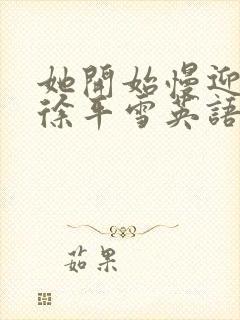 她開始慢迎
徐平雪英語
茹果